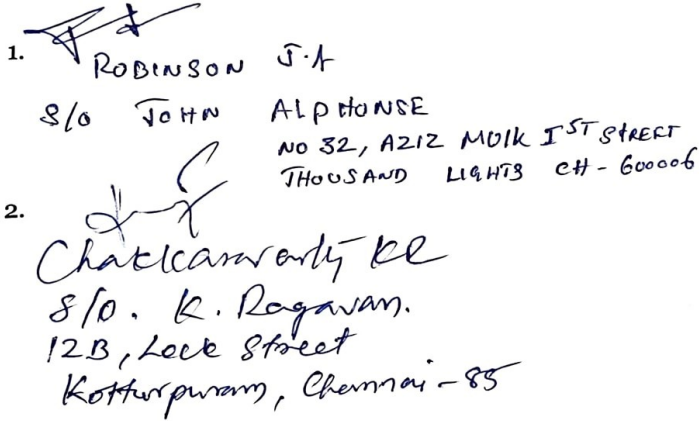 1.
ROBINSON J.A
S/o JOHN ALPHONSE
NO 32, AZIZ MULK IST STREET
THOUSAND LIGHTS CH - 600006
2.
Chakkaravarthy KR
S/o. K. Ragavan.
12B, Lock Street
Kotturpuram, Chennai - 85